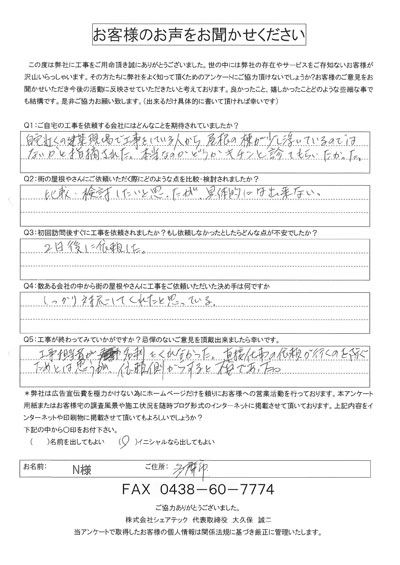 お客様のお声をお聞かせください
この度は弊社に工事をご用命頂き誠にありがとうございました。世の中には弊社の存在やサービスをご存知ないお客様が
沢山いらっしゃいます。その方たちに弊社をよく知って頂くためのアンケートにご協力頂けないでしょうか?お客様のご意見をお
聞かせいただき今後の活動に反映させていただきたいと考えております。良かったこと、嬉しかったことどのような些細な事で
も結構です。是非ご協力お願い致します。(出来るだけ具体的に書いて頂ければ幸いです)
Q1:ご自宅の工事を依頼する会社にはどんなことを期待されていましたか?
自宅近くの建築現場で工事をしている人から屋根の棟が少し浮いているのでは
ないかと指摘された。本当なのかどうかキチンと診てもらいたかった。
Q2:街の屋根やさんにご依頼いただく際にどのような点を比較・検討されましたか?
比較・検討したいと思ったが、具体的には出来ない。
Q3:初回訪問後すぐに工事を依頼されましたか?もし依頼しなかったとしたらどんな点が不安でしたか?
2日後に依頼した。
Q4:数ある会社の中から街の屋根やさんに工事をご依頼いただいた決め手は何ですか
しっかり対応してくれたと思っている。
Q5:工事が終わってみていかがですか?忌憚のないご意見を頂戴出来ましたら幸いです。
工事担当者が名刺をくれなかった。直接仕事の依頼が行くのを防ぐ
ためとは思うが、依頼側からすると変であった。
*弊社は広告宣伝費を極力かけない為にホームページだけを頼りにお客様への営業活動を行っております。本アンケート
用紙またはお客様宅の調査風景や施工状況を随時ブログ形式のインターネットに掲載させて頂いております。上記内容をイ
ンターネットや印刷物に掲載させて頂いてもよろしいでしょうか?
下記の中から〇印をお付下さい。
( )名前を出してもよい (〇)イニシャルなら出してもよい
お名前: N様 ご住所:
FAX 0438-60-7774
ご協力ありがとうございました。
株式会社シェアテック 代表取締役 大久保 誠二
当アンケートで取得したお客様の個人情報は関係法規に基づき厳正に管理いたします。